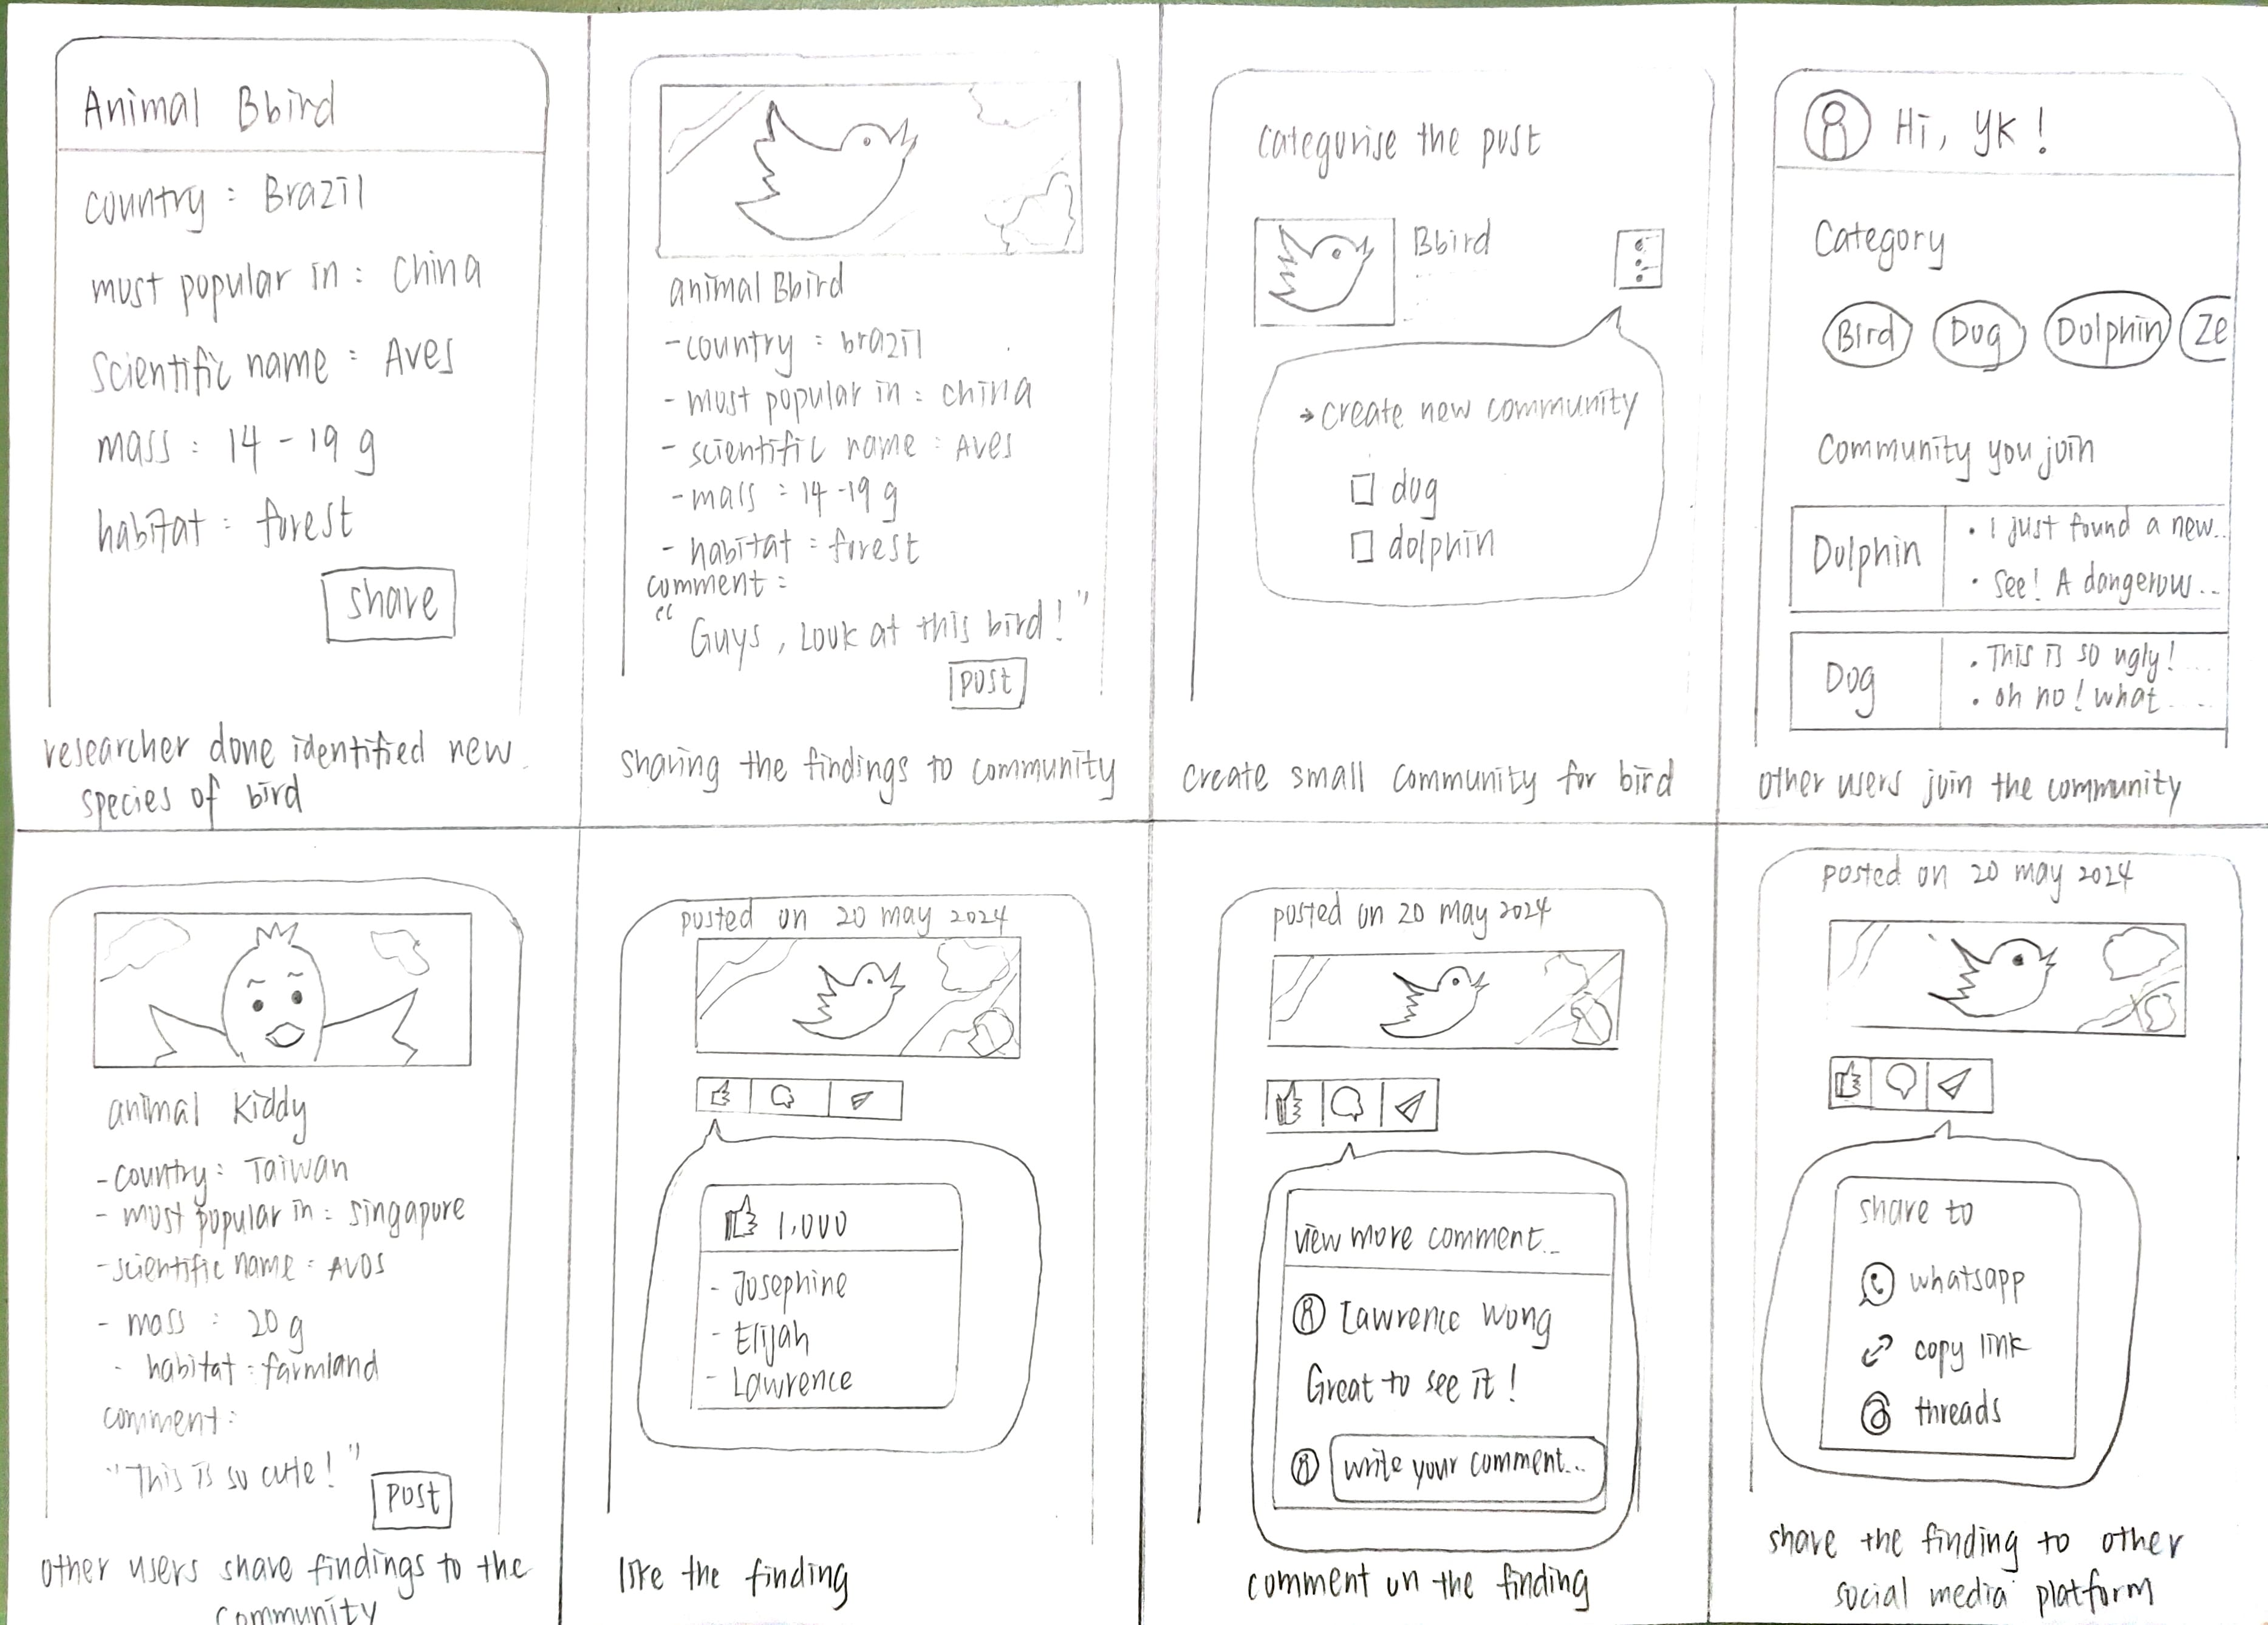 Animal Bbird
country : Brazil
most popular in : China
Scientific name : Aves
mass : 14 - 19 g
habitat : forest
share
researcher done identified new
species of bird
animal Bbird
- country : brazil
- most popular in : china
- scientific name : Aves
- mass : 14 -19 g
- habitat : forest
comment :
" Guys , Look at this bird ! "
post
sharing the findings to community
categorise the post
Bbird
→ create new community
dog
dolphin
create small community for bird
Hi, YK !
Category
Bird Dog Dolphin Ze
Community you join
Dolphin
• I just found a new..
• See! A dangerow...
Dog
• This is so ugly! ...
• oh no! what ....
other users join the community
animal kiddy
- country : Taiwan
- most popular in : Singapore
- scientific name : Avos
- mass : 20 g
- habitat : farmland
comment :
"This is so cute ! "
post
other users share findings to the
community
posted on 20 may 2024
1,000
- Josephine
- Elijah
- Lawrence
like the finding
posted on 20 May 2024
view more comment...
Lawrence Wong
Great to see it !
write your comment...
comment on the finding
posted on 20 may 2024
share to
whatsapp
copy link
threads
share the finding to other
social media platform